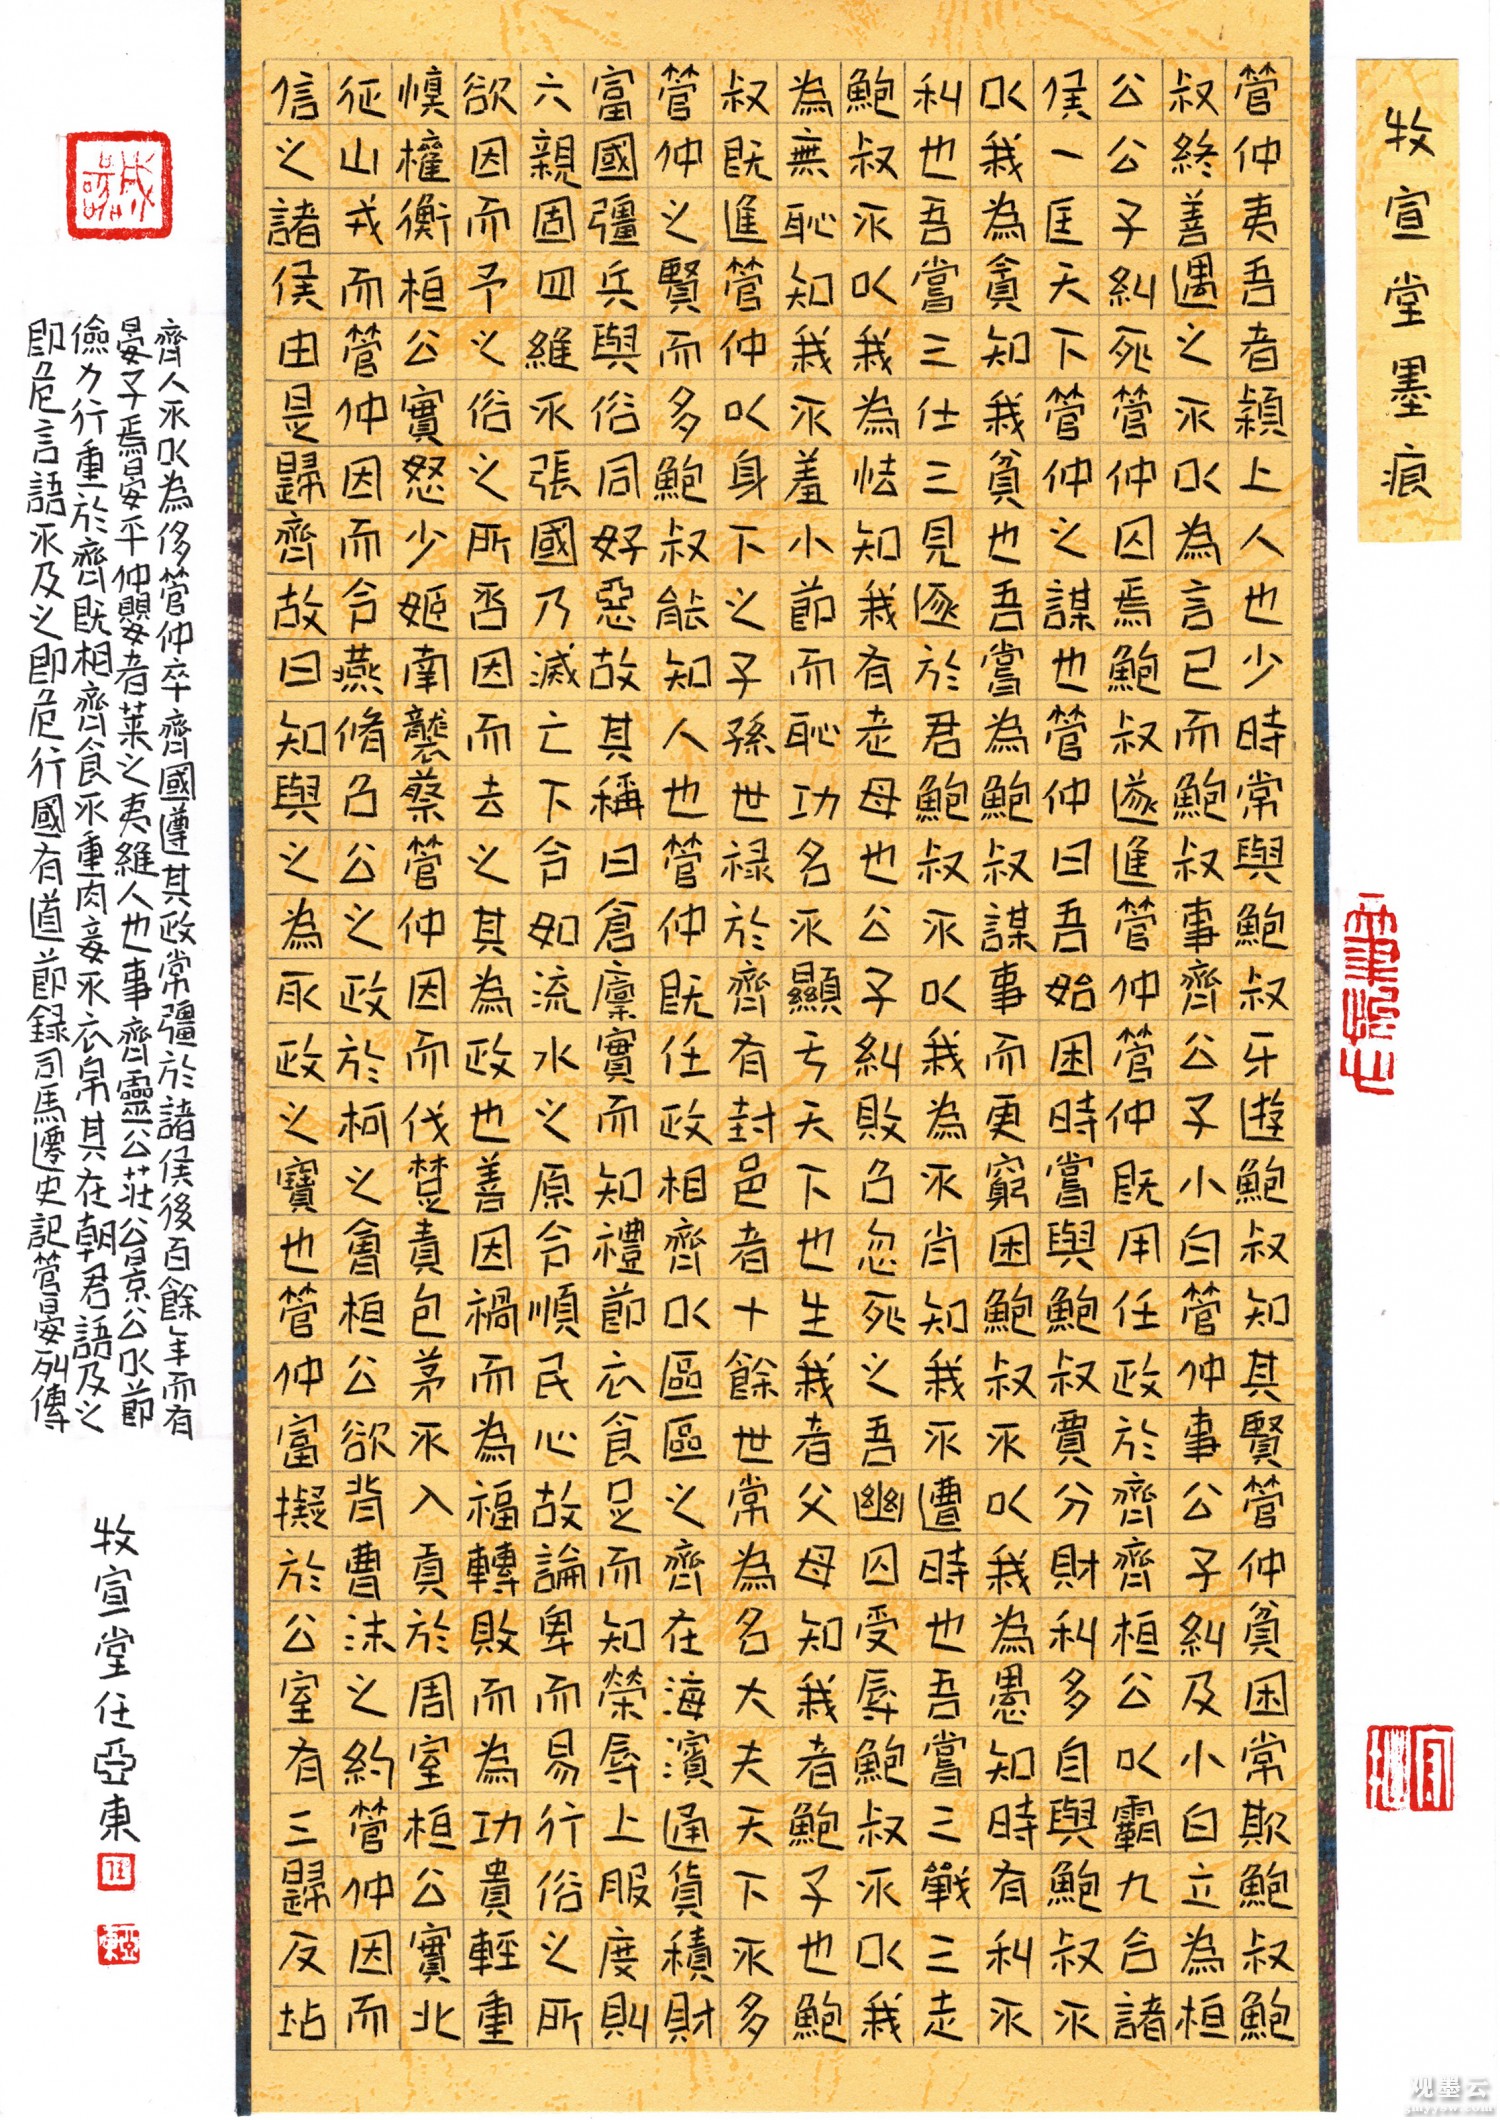 牧宣堂墨痕
管仲夷吾者潁上人也少時常與鮑叔牙遊鮑叔知其賢管仲貧困常欺鮑叔鮑
叔終善遇之不以為言已而鮑叔事齊公子小白管仲事公子糾及小白立為桓
公公子糾死管仲囚焉鮑叔遂進管仲管仲既用任政於齊齊桓公以霸九合諸
侯一匡天下管仲之謀也管仲曰吾始困時嘗與鮑叔賈分財利多自與鮑叔不
以我為貪知我貧也吾嘗為鮑叔謀事而更窮困鮑叔不以我為愚知時有利不
利也吾嘗三仕三見逐於君鮑叔不以我為不肖知我不遭時也吾嘗三戰三走
鮑叔不以我為怯知我有老母也公子糾敗召忽死之吾幽囚受辱鮑叔不以我
為無恥知我不羞小節而恥功名不顯于天下也生我者父母知我者鮑子也鮑
叔既進管仲以身下之子孫世祿於齊有封邑者十餘世常為名大夫天下不多
管仲之賢而多鮑叔能知人也管仲既任政相齊以區區之齊在海濱通貨積財
富國彊兵與俗同好惡故其稱曰倉廩實而知禮節衣食足而知榮辱上服度則
六親固四維不張國乃滅亡下令如流水之原令順民心故論卑而易行俗之所
欲因而予之俗之所否因而去之其為政也善因禍而為福轉敗而為功貴輕重
慎權衡桓公實怒少姬南襲蔡管仲因而伐楚責包茅不入貢於周室桓公實北
征山戎而管仲因而令燕脩召公之政於柯之會桓公欲背曹沫之約管仲因而
信之諸侯由是歸齊故曰知與之為取政之寶也管仲富擬於公室有三歸反坫
齊人不以為侈管仲卒齊國遵其政常彊於諸侯後百餘年而有
晏子焉晏平仲嬰者萊之夷維人也事齊靈公莊公景公以節
儉力行重於齊既相齊食不重肉妾不衣帛其在朝君語及之
即危言語不及之即危行國有道節錄司馬遷史記管晏列傳
牧宣堂任亞東
誠
任
亞東
观墨云
gmyyow.com